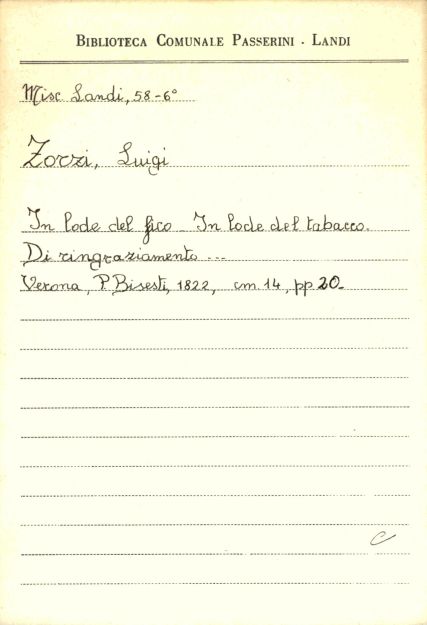 BIBLIOTECA COMUNALE PASSERINI - LANDI
Misc Landi, 58-6°
Zorzi, Luigi
In lode del fico - In lode del tabacco.
Di ringraziamento ...
Verona, P. Bisesti, 1822, cm. 14, pp 20-
C